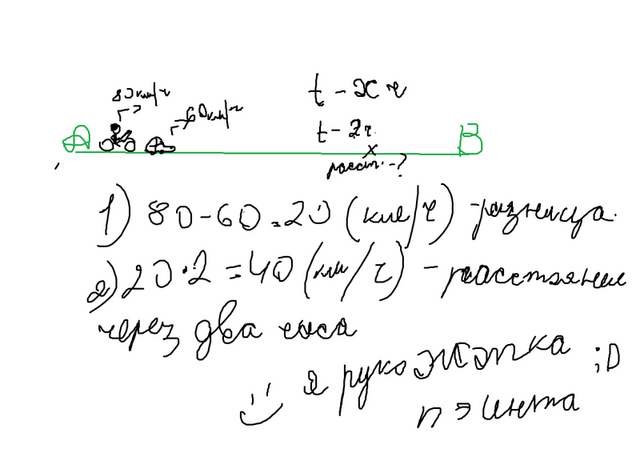 80км/ч
60км/ч
t - x ч
t - 2ч.
A B
x
расст. - ?
1) 80-60=20 (км/ч) - разница.
2) 20·2=40 (км/ч) - расстояние
через два часа
я рукожэпка ;D
пэинта